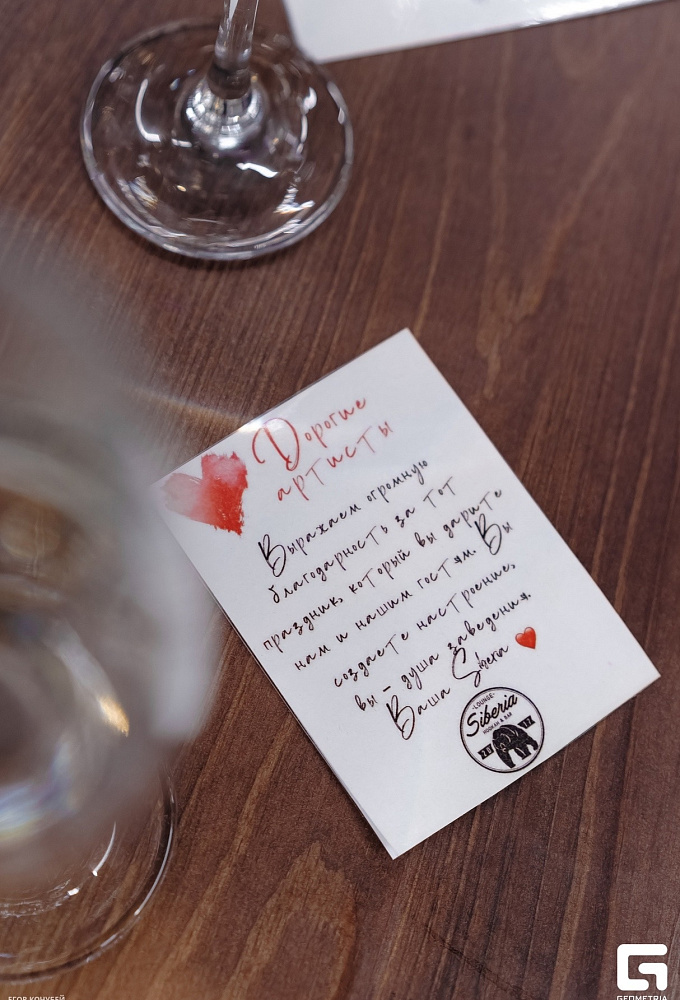 Дорогие
артисты
Выражаем огромную
благодарность за тот
праздник, который вы дарите
нам и нашим гостям. Вы
создаете настроение,
вы - душа заведения.
Ваша Siberia
LOUNGE
Siberia
HOOKAH & BAR
20 17
ЕГОР КОЧУБЕЙ
GEOMETRIA